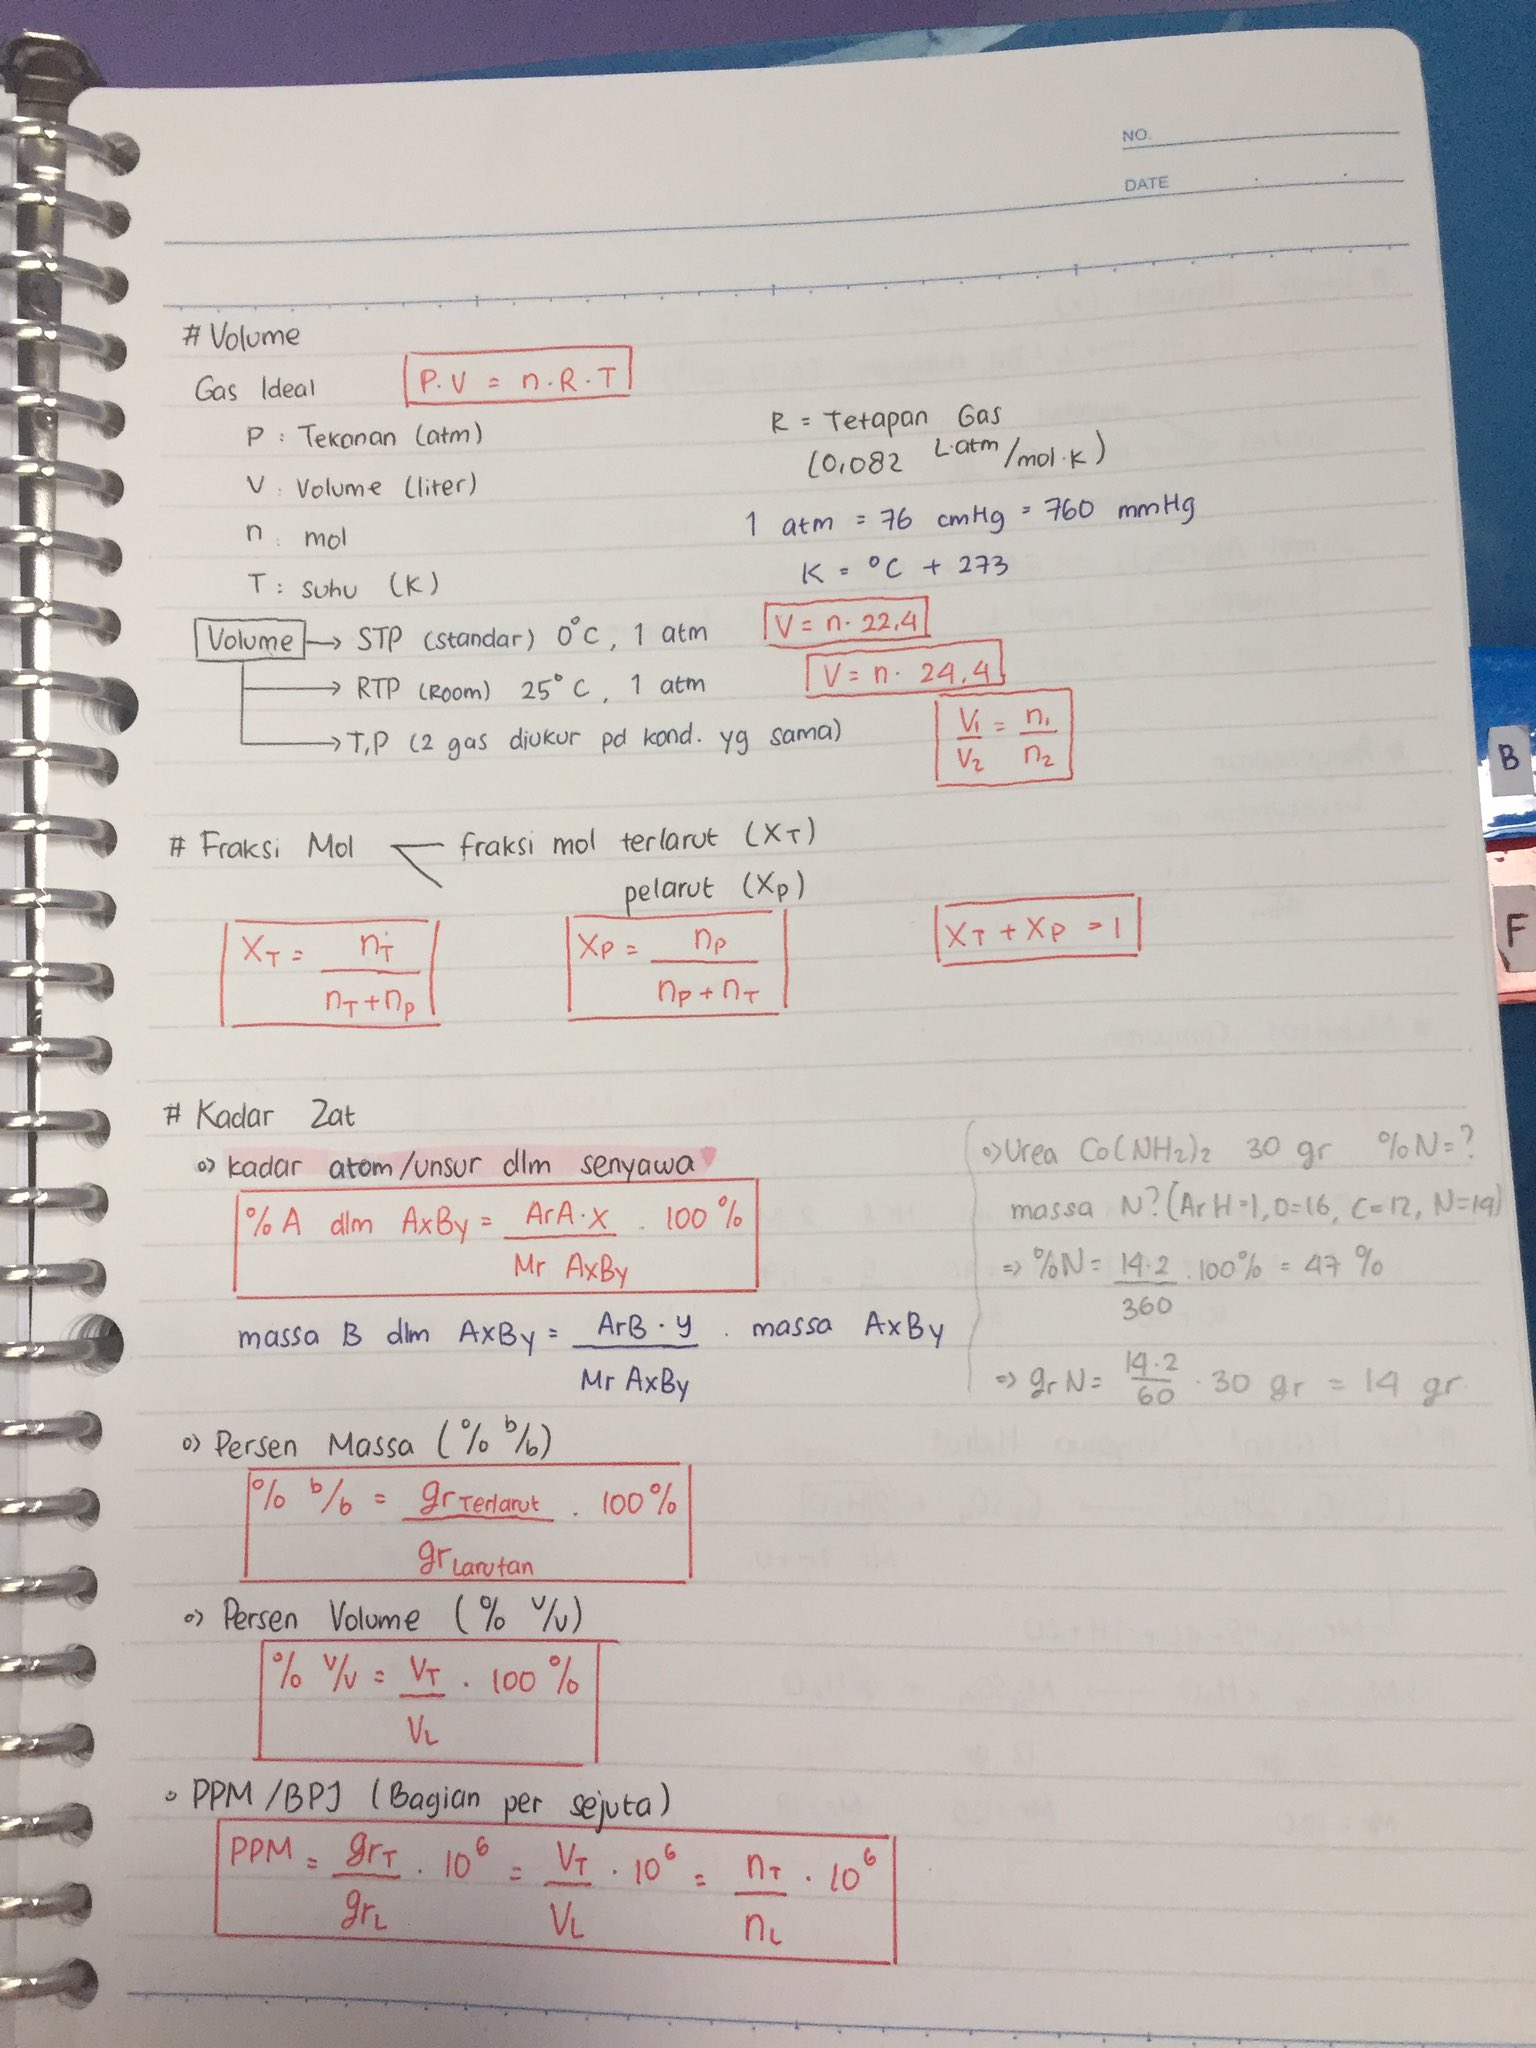 NO.
DATE
# Volume
Gas Ideal P.V = n.R.T
P : Tekanan (atm)
V : Volume (liter)
n : mol
T : suhu (K)
R = Tetapan Gas
(0,082 L.atm/mol.K)
1 atm = 76 cmHg = 760 mmHg
K = °C + 273
Volume → STP (standar) 0°C, 1 atm V = n. 22,4
→ RTP (Room) 25°C, 1 atm V = n. 24,4
→ T,P (2 gas diukur pd kond. yg sama) V1/V2 = n1/n2
# Fraksi Mol fraksi mol terlarut (XT)
pelarut (Xp)
XT = nT/nT+np
Xp = np/np+nT
XT + Xp = 1
# Kadar Zat
o> kadar atom/unsur dlm senyawa
%A dlm AxBy = ArA.x/Mr AxBy . 100%
massa B dlm AxBy = ArB.y/Mr AxBy . massa AxBy
o> Urea Co(NH2)2 30 gr %N=?
massa N? (Ar H=1, O=16, C=12, N=14)
=> %N = 14.2/360 .100% = 47 %
=> gr N = 14.2/60 . 30 gr = 14 gr
o> Persen Massa (% b/b)
% b/b = gr Terlarut/gr Larutan . 100%
o> Persen Volume (% v/v)
% v/v = VT/VL . 100%
o PPM/BPJ (Bagian per sejuta)
PPM = grT/grL . 10^6 = VT/VL . 10^6 = nT/nL . 10^6
B
F